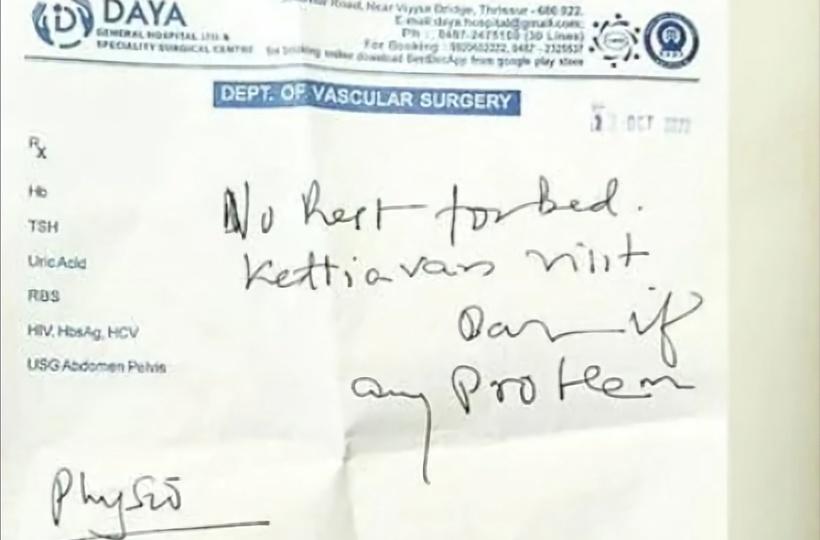 DAYA
GENERAL HOSPITAL LTD &
SPECIALITY SURGICAL CENTRE
Road, Near Viyyur Bridge, Thrissur - 680 022.
E-mail:daya.hospital@gmail.com
Ph : 0487-2475100 (30 Lines)
For Booking :
for booking online download BestDocApp from google play store
DEPT. OF VASCULAR SURGERY
OCT
Rx
Hb
TSH
Uric Acid
RBS
HIV, HbsAg, HCV
USG Abdomen Pelvis
No Rest for bed.
visit
if
any Problem
Physio